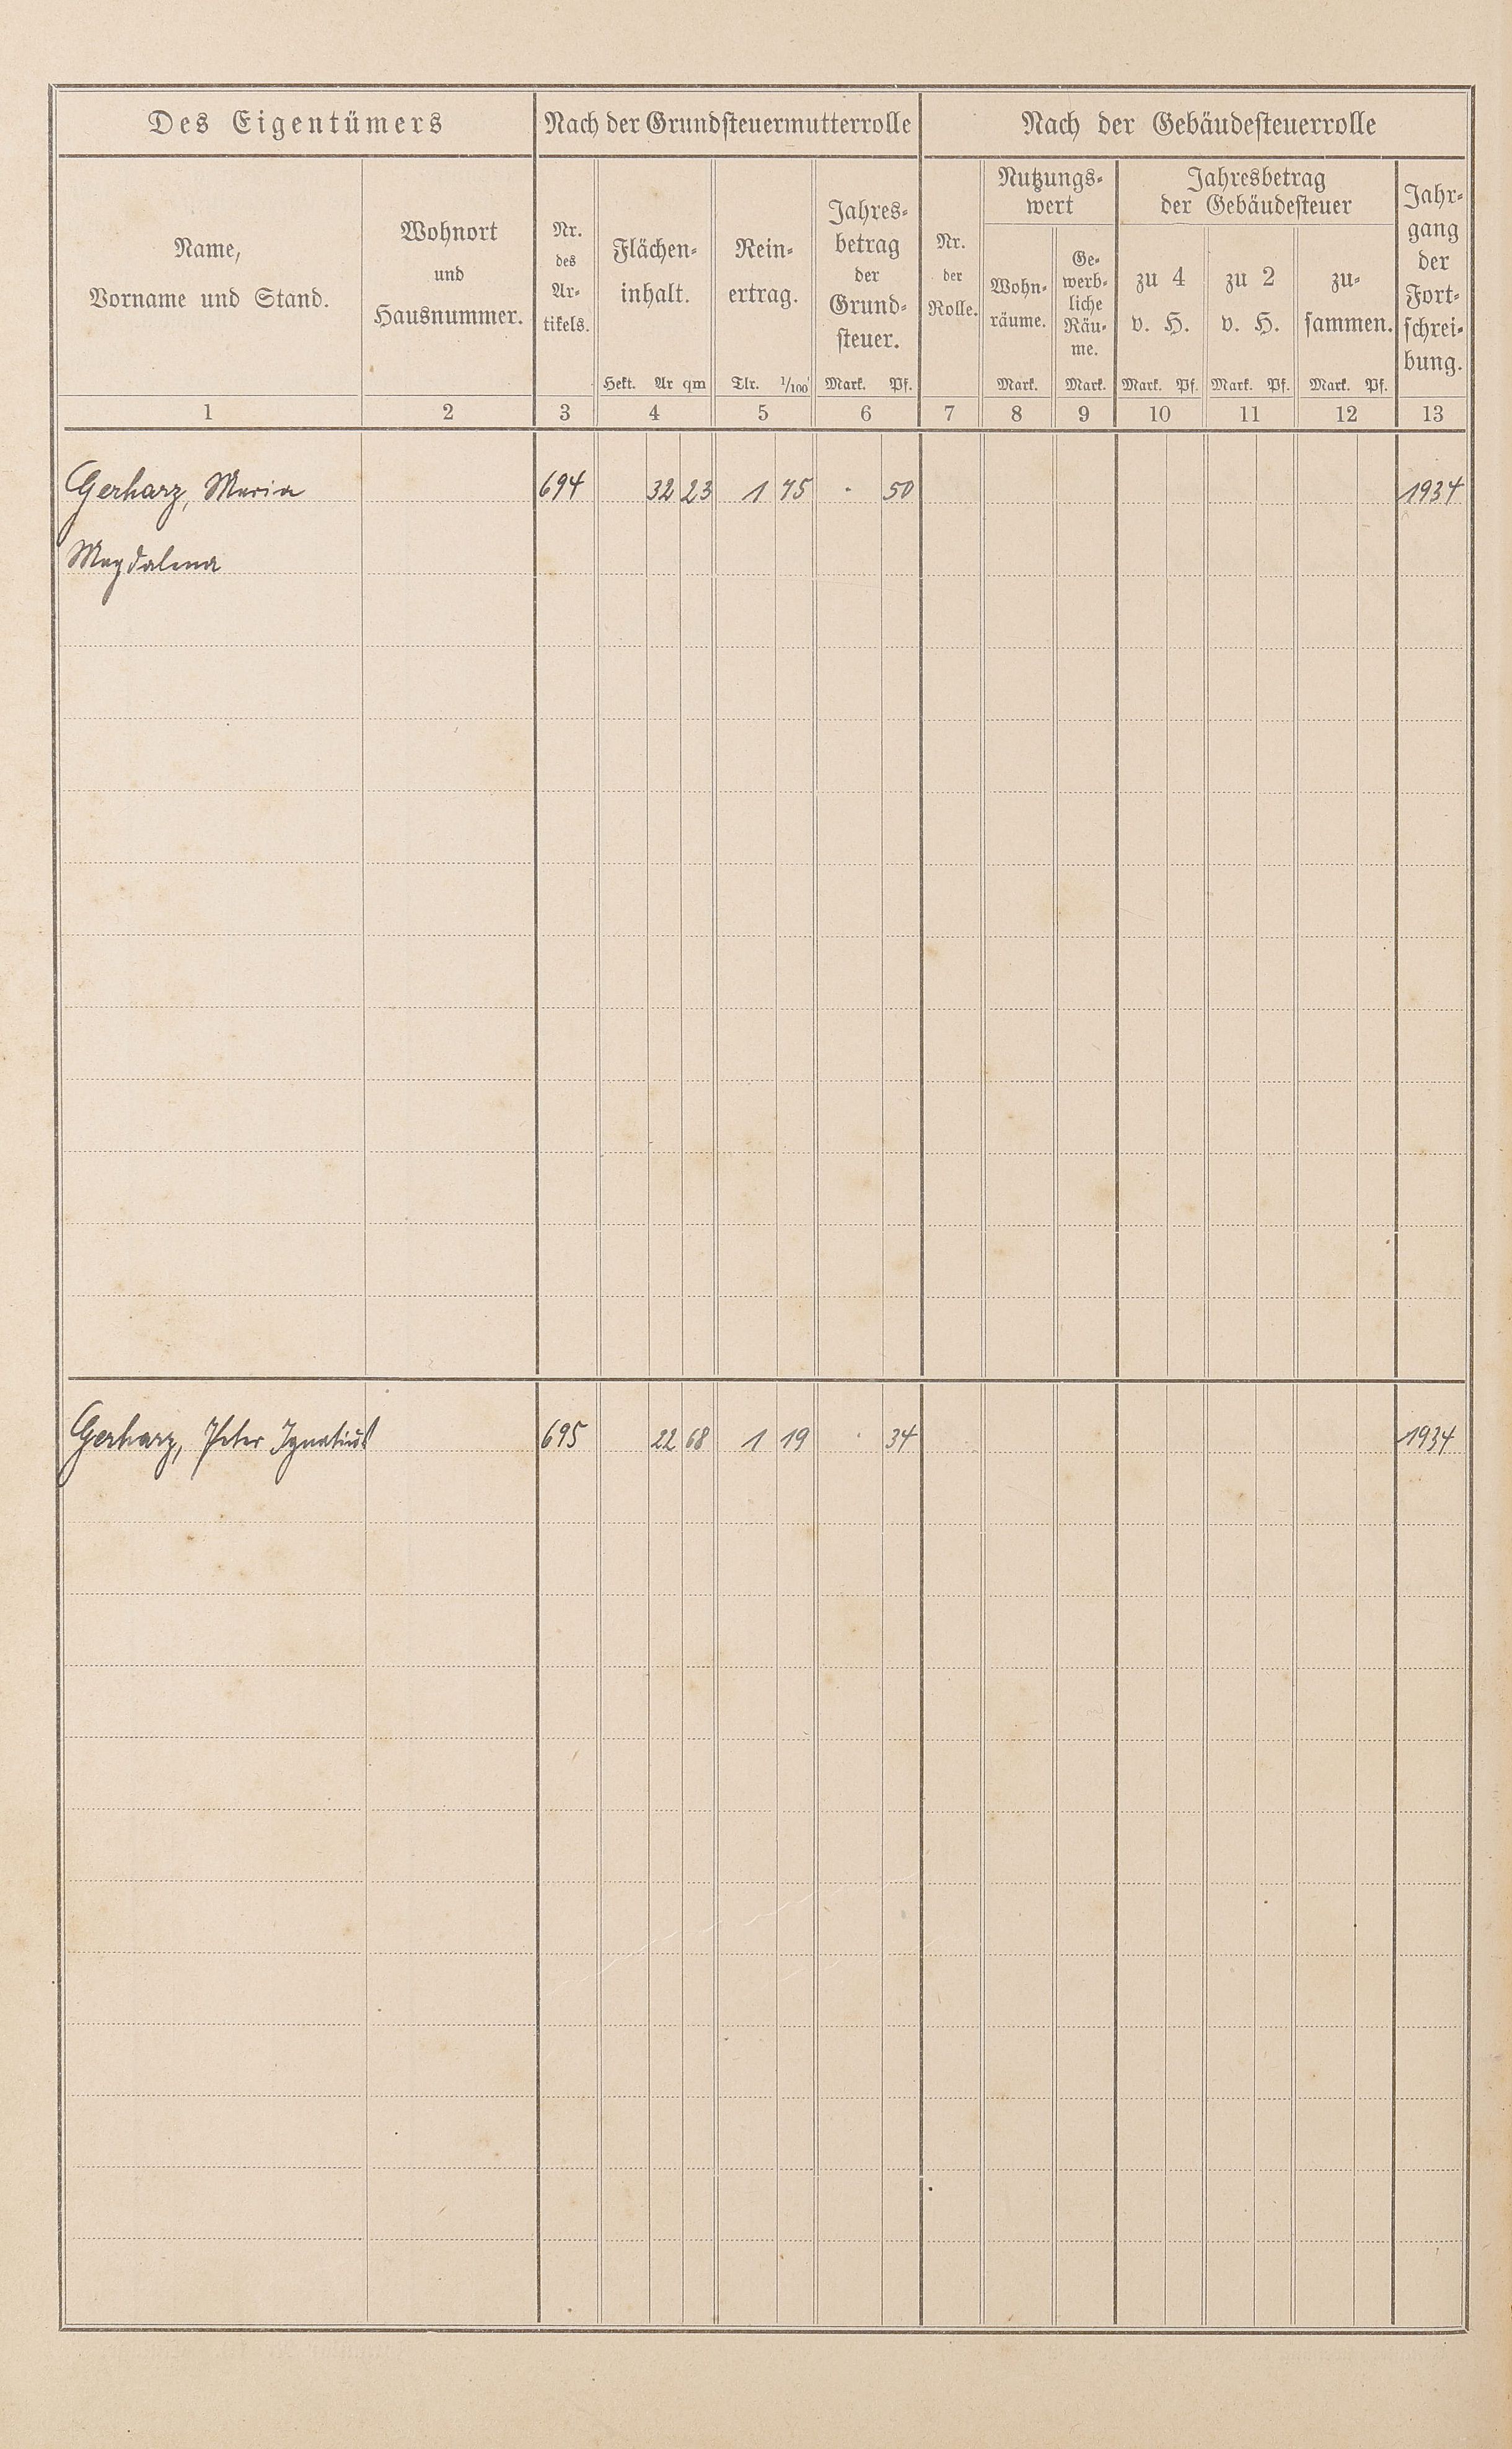 Des Eigentümers Nach der Grundsteuermutterrolle Nach der Gebäudesteuerrolle
Name,
Vorname und Stand.
Wohnort
und
Hausnummer.
Nr.
des
Ar-
tikels.
Flächen-
inhalt.
Hekt. Ar qm
Rein-
ertrag.
Tlr. 1/100
Jahres-
betrag
der
Grund-
steuer.
Mark. Pf.
Nr.
der
Rolle.
Nutzungs-
wert
Wohn-
räume.
Mark.
Ge-
werb-
liche
Räu-
me.
Mark.
Jahresbetrag
der Gebäudesteuer
zu 4
v. H.
Mark. Pf.
zu 2
v. H.
Mark. Pf.
zu-
sammen.
Mark. Pf.
Jahr-
gang
der
Fort-
schrei-
bung.
1 2 3 4 5 6 7 8 9 10 11 12 13
Gerharz, Maria 694 32 23 1 75 · 50 1934
Magdalena
Gerharz, Peter Ignatius 695 22 68 1 19 · 34 1934